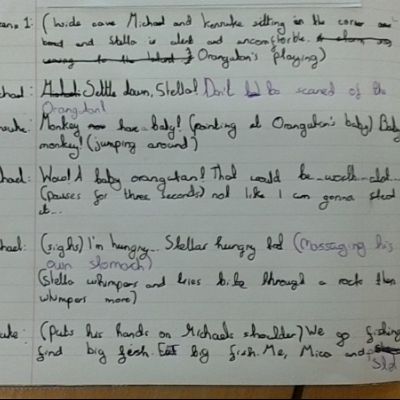 ene 1: (Inside cave Michael and Kensuke sitting in the corner
and Stella is alert and uncomfortable.
Orangutan's playing)
chael: Settle down, Stella! Don't be scared of the
Orangutan!
suke: Monkey have baby! (pointing at Orangutan's baby) Baby
monkey! (jumping around)
hael: Wow! A baby orangutan! That would be worth alot...
(pauses for three seconds) not like I am gonna steal
it...
hael: (sighs) I'm hungry... Stellar hungry too (Massaging his
own stomach)
(Stella whimpers and tries to bite through a rock then
whimpers more)
uke: (Puts his hands on Michaels shoulder) We go fishing
find big fish. Eat big fish. Me, Mica and